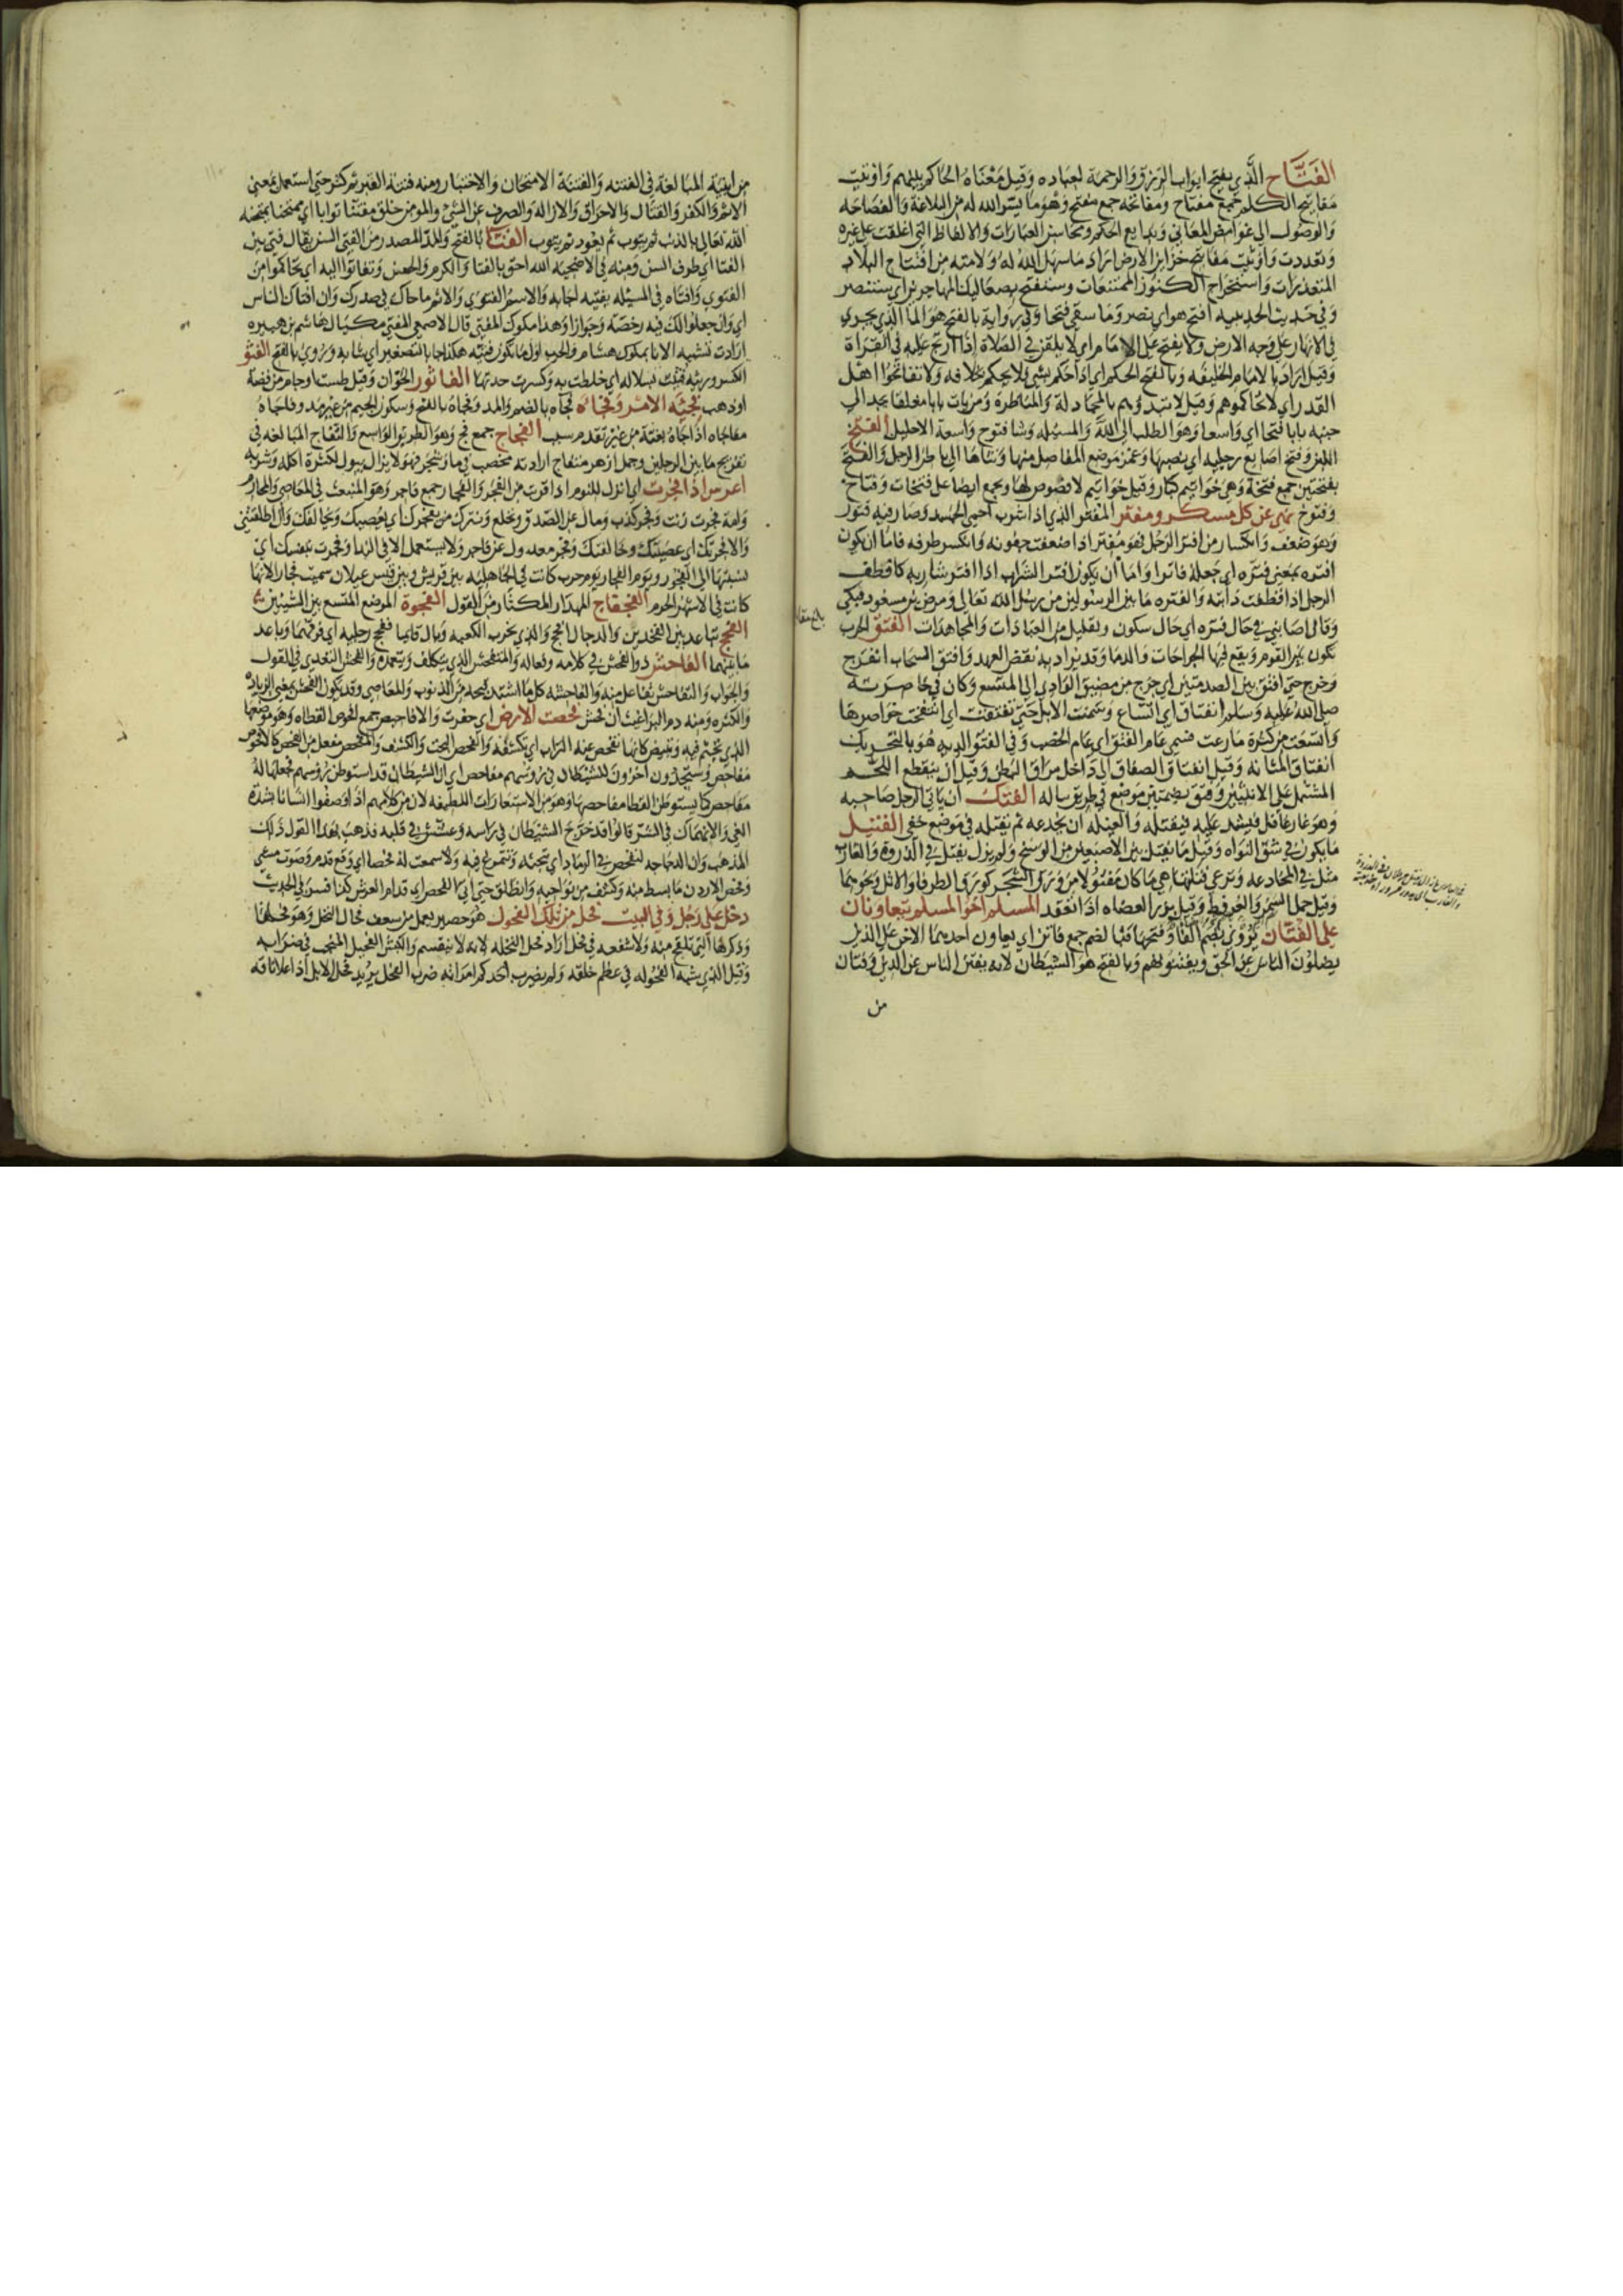 الفَتَّاح الَّذي يفتح ابواب الرزق وَالرحمة لعباده وَقيل مَعْنَاهُ الحاكم بينهم وَاوتيت
مَفاتيح الكلم جَمع مفتاح ومفاتحه جمع مفتح وَهُوَ مَا يسّر الله له من البلاغة وَالفصَاحَه
وَالوصُول الى غوامض المعَاني وَبدايع الحكم ومحاسن العبَارات وَالالفاظ التي اغلقت على غيره
وَتعذرت وَاوتيت مَفَاتيح خزاين الارض اراد مَا سهل اللهُ له وَلامته من افتتاح البلاد
المتعذرَات وَاستخراج الكنُوز الممتنعات وَيستفتح بصعَاليك المهاجرين اي يستنصر
وَفي حَديث الحديبيه افتح هو اي نصر وَمَا سقي فتحا وَفي رواية بالفتح هوَ الماء الذي يجري
في الانهَار على وَجه الارض وَلا يفتح على الامَام اي لا يلقن في الصّلاة اذا ارتج عَليه في القِرَاة
وَقيل ارَاد بالامَام الخليفه وَبالفتح الحكم اي اذا حكم بشي فلا يحكم بخلافه وَلا تفاتحُوا اهل
القدر اي لا تحاكموهم وَقيل لا تبدؤهم بالمجَادلة وَالمنَاظرة وَمن يات بابا مغلقا يجد الى
جنبه بابا فُتحا اي وَاسعا وَهوَ الطلب الى اللهِ وَالمسئله وَشَا فتوح وَاسعة الاحليل الفتخ
اللين وَفتخ اصَابع رجليه اي نصبهَا وَغمز مَوضع المفَاصل منهَا وَثناهَا الى باطن الرجل وَالفتخ
بفتحتين جمع فتخة وَهي خَواتيم كبَار وَقيل خَواتيم لا فصُوص لهَا وَيجمع ايضا على فتخات وَفتاخ
وَفتوخ نَهي عن كل مسكر ومفتر المفتر الذي اذا شرب احمى الجسد وَصَار فيه فتور
وَهوَ ضعف وَانكسار من افتر الرجُل فهوَ مُفتر اذا ضعفت جفونه وَانكسر طرفه فامّا ان يكون
افتره بمعنى فتّره اي جَعلهُ فاترا وَامّا ان يكون افتر الشراب اذا افتر شاربه كاقطف
الرجل اذا قطفت دَابته وَالفتره مَا بين الرسُولين من رسُل الله تعَالى وَمرض بن مسعُود فبكى
وَقال اصَابني في حَال فترَه اي حَال سكون وَتقليل من العبَادَات وَالمجَاهدَات الفَتقُ الحرب
تكون بين القوم وَيقع فيهَا الجراحَات وَالدمَا وَقد يراد به نقض العهد وَافتق السحَاب انفرج
وَخرج حتى افتق بين الصدمتين اي خرج من مضيق الوَادي الى المتسع وَكان في خَاصِرَته
صلى اللهُ عَليه وَسَلم انفتاق اي اتساع وَسَمنت الابل حَتى تفتقت اي انتفخت خوَاصرهَا
وَاتسعت من كثرة مَا رعت فسمي عَام الفتق اي عَام الخصب وَفي الفتق الديه هُوَ بالتحريك
انفتاق المثانه وَقيل انفتاق الصفاق الى دَاخل في مرَاق البطن وَقيل ان ينقطع اللحم
المشتمل على الانثيين وَفتق بضمتين مَوضع في طريق تباله الفتك ان يَاتي الرجل صَاحبه
وَهوَ غار غافل فيشد عليه فيقتله وَالغيله ان يخدعه ثم يقتله في مَوضع خفي الفتيل
مَا يكون في شق النوَاه وَقيل مَا يفتل بين الاصبَعين من الوسَخ وَلم يزل يفتل في الذروة وَالغارب
مثل في المخَادعه وَترعى فتلتها هي مَا كان مَفتُولا من وَرق الشجَر كورَق الطرفا وَالاثل وَنحوهما
وَقيل حمل السمر وَالعرفط وَقيل نور العضاه اذا انعقد المسلم اخو المسلم يتعَاونان
على الفُتَّان يُرْوَى بضم الفا وَفتحهَا فبَا لضم جمع فاتن اي يعاون احدهما الاخر على الذين
يضلُونَ الناس عن الحق وَيفتنونهم وَبالفتح هوَ الشيطَان لانه يفتن الناس عن الدين وَفتان
من
من ابنية المبَالغة في الفتنه وَالفتنة الامتحَان وَالاختبار ومنه فتنة القبر ثم كثر حتى استعمل بمعنى
الاثم وَالكفر وَالقتال وَالاحرَاق وَالازاله وَالصرف عن الشيْ وَالمومن خلق مفتّنا توابا اي ممتحنا يمتحنه
الله تعَالى بالذنب ثم يتوب ثم يعود ثم يتوب الفتا بالفتح وَالمدّ المصدر من الفتي السن يقال فتي بين
الفتا اي طري السن وَمنه في الاضحيه الله احق بالفتا وَالكرم وَتفاتوا اليه اي تحاكموا من
الفتوي وَافتاه في المسئله يفتيه اجَابه وَالاسم الفتوَي وَالاثم مَا حاك في صدرك وَان افتاك الناس
اي وَان جعلوا لك فيه رخصَة وَجوَازا وَهذا مكوك المفتي قال الاصمعي المفتي مكيَال هَاشم بن هبيره
ارَادت تشبيه الانا بمكوك هشام وَالحرب اول مَا تكون فتيّه هكذا جا بالتصغير اي شابه وَرُوي بالفتح الفثو
الكسر وَرثية فثئت بسلاله اي خلطت به وَكسرت حدتهَا الفَاثُور الخوَان وَقيل طست او جام من فضة
او ذهب فُجئَه الامر وَفجَاه فُجاه بالضم وَالمد وَفجَاة بالفتح وَسكون الجيم من غير مد وفاجَاهُ
مفَاجَاه اذا جَاهُ بغتة من غير تقدم سبب الفِجَاج جمع فج وَهوَ الطريق الوَاسع وَالتفاج المبَالغة في
تفريج مَا بين الرجلين
اعرس اذا افجرت اي انزل للنوم اذا قربت من الفجر وَالفجار جمع فاجر وَهوَ المنبعث في المعَاصي وَالمحَارم
وَامة فجرت زنت وَفجر كذب وَمال عن الصدق وَنخلع وَنترك من يفجرك اي يعصيك وَيخالفك
كانت في الاشهر الحرم الفجفاج المهذار المكثار من القول الفجوة الموضع المتسع بين الشيئين
الفحج تبَاعد بين الفخذين وَالدجال افحج وَالذي يخرب الكعبه وَبال قايما ففحج رجليه اي فرقهما وَبَاعد
مَا بينهما الفاحش ذو الفحش في كلامه وَفعاله وَالمتفحش الذي يتكلف وَيتعمده وَالفحش التعدي في القول
وَالجوَاب وَالتفاحش تفاعل منه وَالفاحشه كل مَا اشتد قبحه من الذنوب وَالمعَاصي وَقد يكون الفحش بمعنى الزيَاده
وَالكثره وَمنه دم البرَاغيث ان فحش فحصت الارض اي حفرت وَالافاحيص جمع افحوص القطاه وَهوَ موضعهَا
الذي تجثم فيه وَتبيض كانهَا تفحص عنه التراب اي تكشفه وَالفحص البحث وَالكشف وَالمفحص مفعل من الفحص كالافحوص
مَفاحِص وَستجدون اخرون للشيطَان في رؤسهم مفاحص اي ان الشيطَان قد استوطن رؤسهم فجعلهَا لهُ
مفَاحص كما يستوطن القطا مفاحصهَا وَهوَ من الاستعَارات اللطيفه لان من كلامهم اذا وَصفُوا انسَانا بشدة
الغي وَالانهمَاك في الشر قالوا قد فرّخ الشيْطَان في رَاسه وَعشش في قلبه فذهب بهذا القول ذلك
المذهب وَان الدجاجه لتفحص في الرمَاد اي تبحثه وَتتمرغ فيه وَلا سمعت له فحصا اي وَقع قدم وَصوت مشي
وَفحص الاردن مَا بسط منه وَكشف من نواحيه وَانطلق حتى اتى الفحص اي قدام العرش كذا فسر في الحديث
دخل على رجُل وَفي البيت فحل من تلك الفحول هوَ حصير يعمل من سعف فحال النخل وَهوَ فحلهَا
وَذكرهَا التي تلقح منه وَلا شفعه في فحل ارَاد فحل النخله لانه لا ينقسم وَالكبش الفحيل المنجب في ضرَابه
وَقيل الذي يشبه الفحُوله في عظم خلقه وَلم يضرب احدكم امرَاته ضربَ الفحل يريد فحل الابل اذا علا ناقه